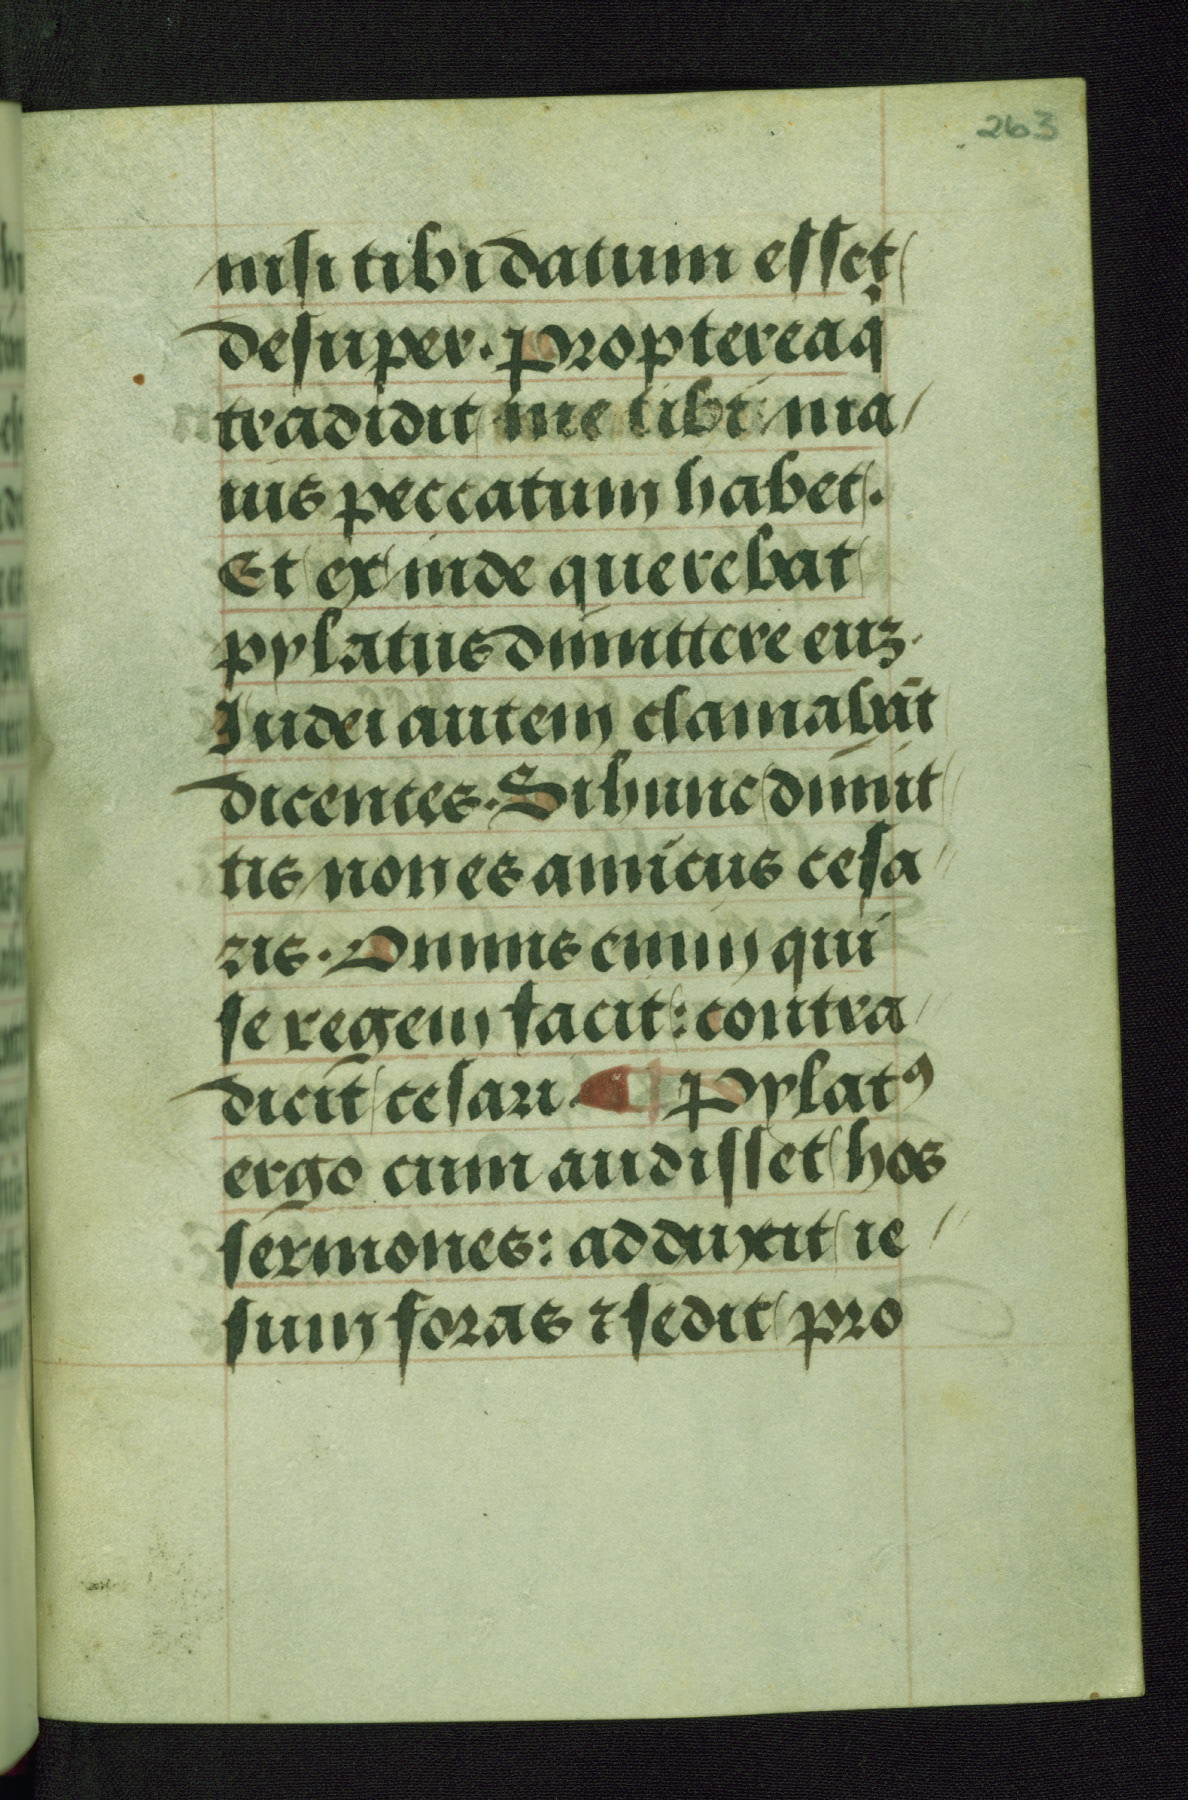 263
nisi tibi datum esset
desuper. Propterea q̇
tradidit me tibi: ma
ius peccatum habet.
Et ex inde querebat
pylatus dimittere euʒ.
Iudei autem clamabāt
dicentes. Si hunc dimit
tis non es amicus cesa
ris. Omnis enim qui
se regem facit: contra
dicit cesari. Pylatꝰ
ergo cum audisset hos
sermones: adduxit ie
sum foras ⁊ sedit pro